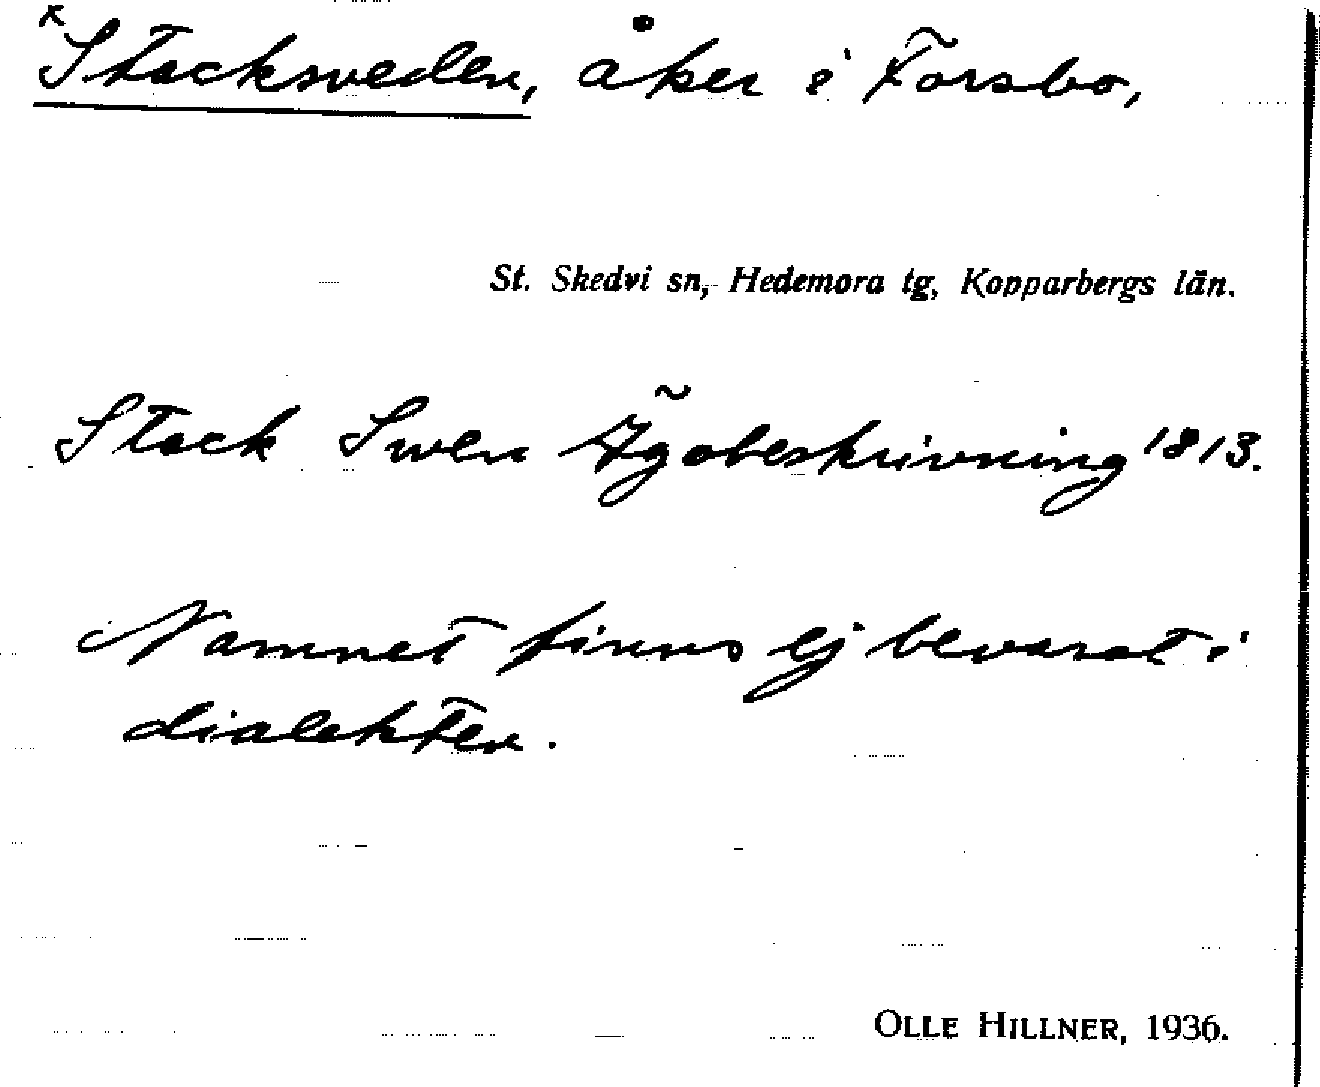 x Stocksveden, åker i Forsbo,
St. Skedvi sn, Hedemora tg, Kopparbergs län.
Stock Swen Ägobeskrivning 1813.
Namnet finns ej bevarat i
dialekten.
OLLE HILLNER, 1936.